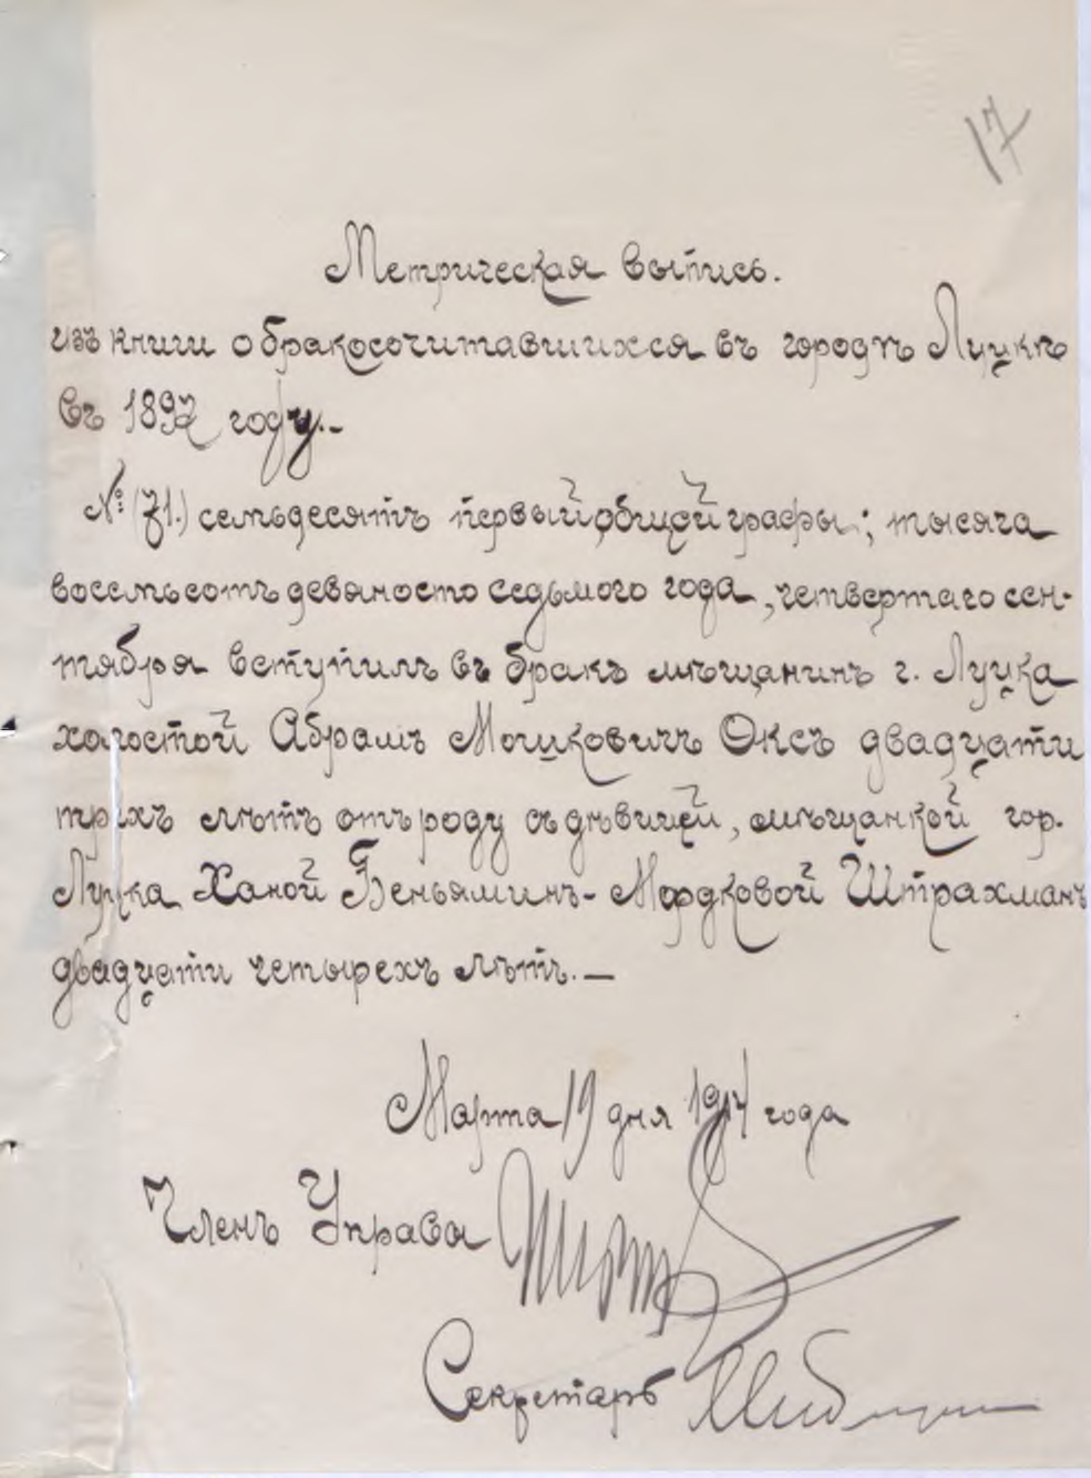 17
Метрическая выпись.
изъ книги о бракосочитавшихся въ городѣ Луцкѣ
въ 1897 году.-
№ (71.) семьдесятъ первый общей графы; тысяча
восемьсотъ девяносто седьмого года, четвертаго сен-
тября вступилъ въ бракъ мѣщанинъ г. Луцка
холостой Абрамъ Мошковичъ Оксъ двадцати
трехъ лѣтъ отъ роду съ дѣвицей, мѣщанкой гор.
Луцка Ханой Беньяминъ-Мордковой Штрахманъ
двадцати четырехъ лѣтъ.—
Марта 19 дня 1914 года
Членъ Управы
Секретарь